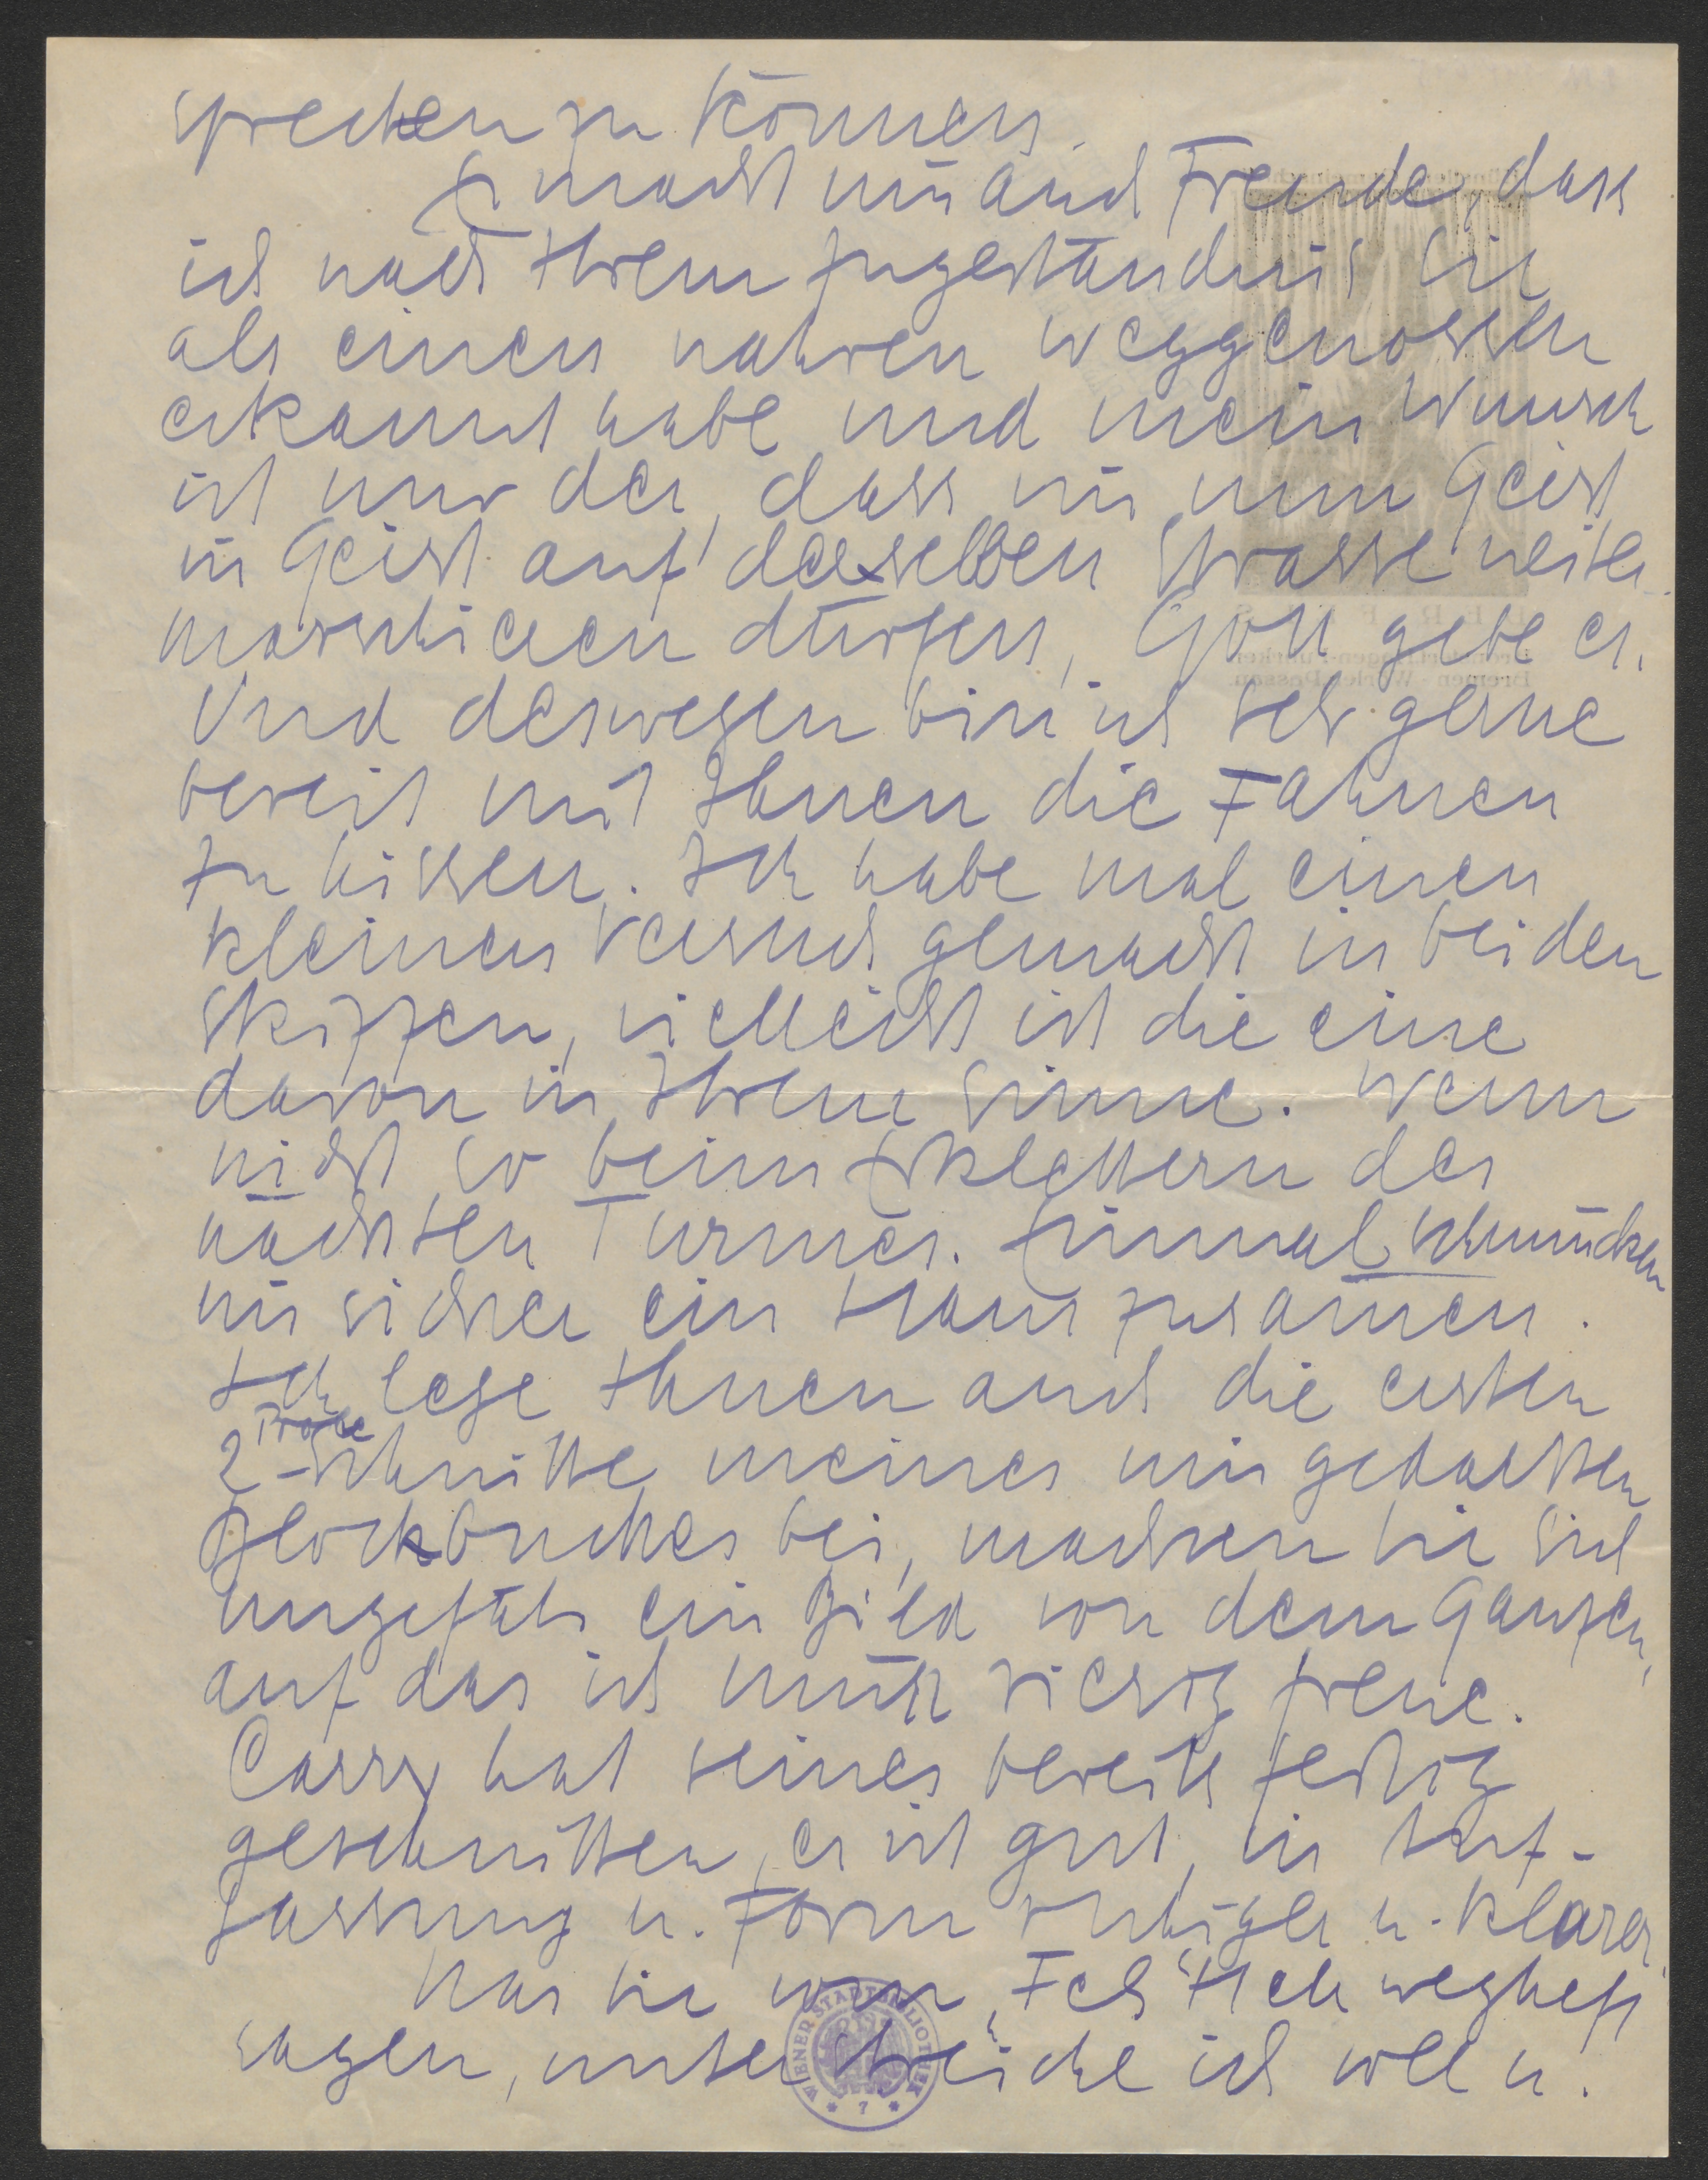 sprechen zu können.
Es macht mir auch Freude, dass
ich nach Ihrem Zugeständnis Sie
als einen wahren Weggenossen
erkannt habe und mein Wunsch
ist nur der, dass wir nun Geist
in Geist auf derselben Strasse weiter-
marschieren dürfen, Gott gebe es.
Und deswegen bin ich sehr gerne
bereit mit Ihnen die Fahnen
zu hissen. Ich habe mal einen
kleinen Versuch gemacht in beiden
Skizzen, vielleicht ist die eine
davon in Ihrem Sinne. Wenn
nicht so beim Erklettern des
nächsten Turmes. Einmal schmücken
wir sicher ein Haus zusamen.
Ich lege Ihnen auch die ersten
2 Probe
-Schnitte meines mir gedachten
Blockbuches bei, machen Sie sich
ungefähr ein Bild von dem Ganzen,
auf das ich mich riesig freue.
Carry hat seines bereits fertig
geschnitten, es ist gut, in Auf-
fassung u. Form ruhiger u. klarer.
Was Sie vom
sagen, unterstreiche ich voll u.
WIENER STADTBIBLIOTHEK
* 7 *